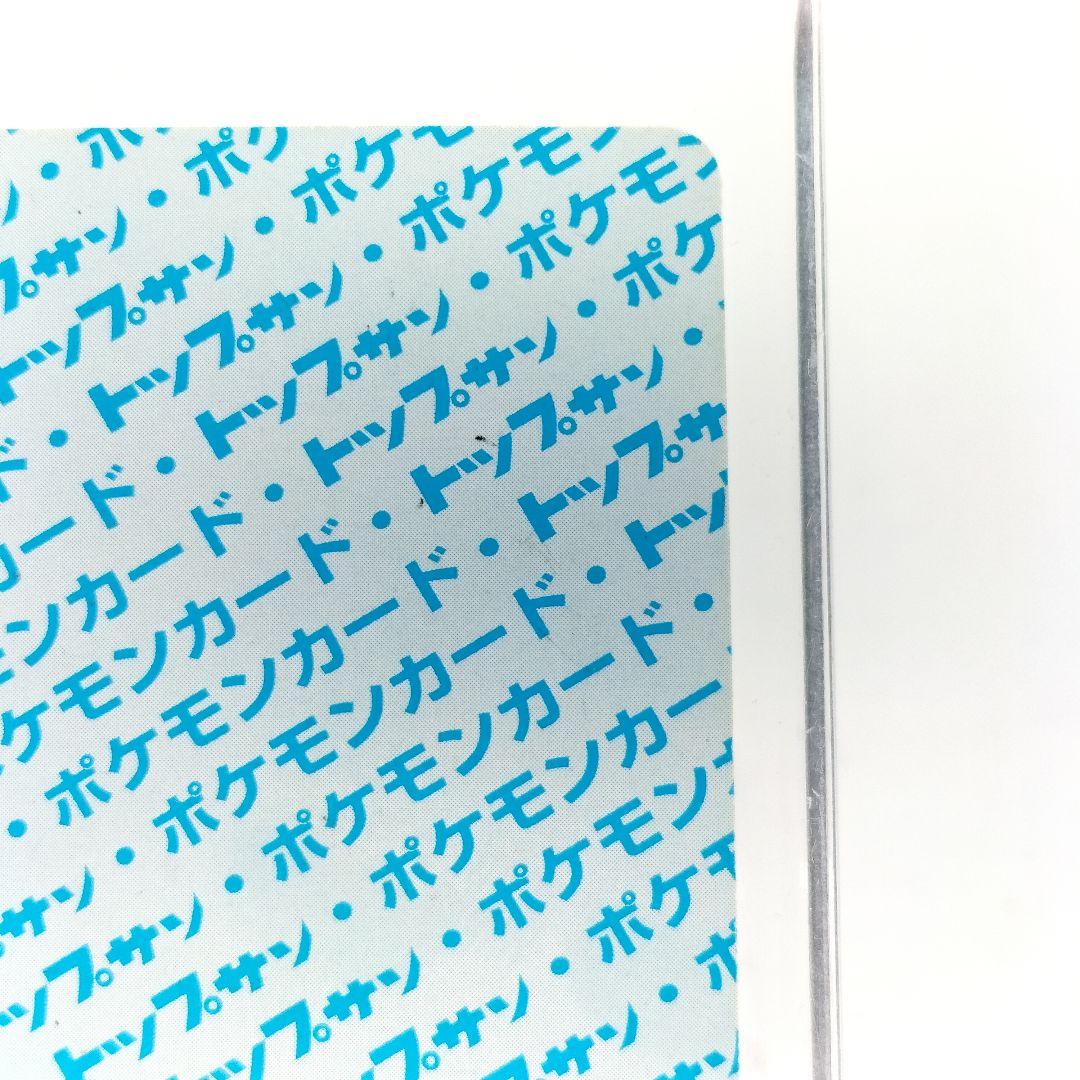 ・ポ
ン・ポケ
プサン・ポケ
トップサン・ポケモ
ド・トップサン・ポケモン
ード・トップサン・ポケ
カード・トップサン・
ンカード・トップサ
ケモンカード・トッ
・ポケモンカード・
サン・ポケモンカー
プサン・ポケモン
トップサン・ポケ
トップサン・ポ